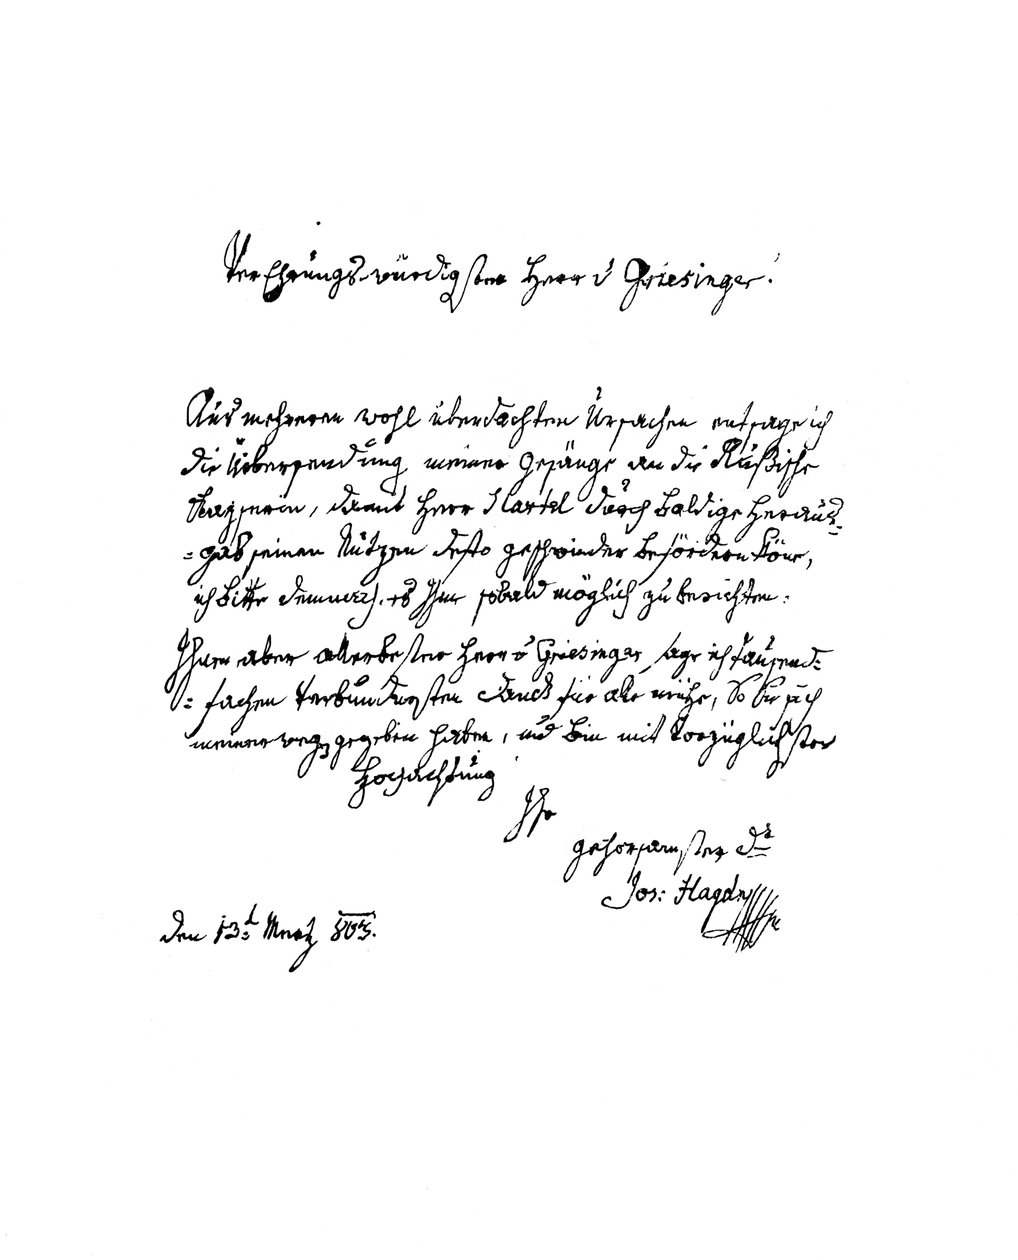 Verehrungs-würdigster Herr v Griesinger!
Aus mehreren wohl überdachten Ursachen entsage ich
die Übersendung meiner Gesänge an die Rußische
Kayserin, damit Herr Hartel durch baldige heraus=
=gab seinen Nutzen desto geschwinder befördern köne,
ich bitte demnach, es Ihm sobald möglich zu berichten:
Ihnen aber allerbester Herr v Griesinger sage ich tausend=
=fachen verbundnsten Danck für alle mühe, so Sie sich
meinerwegen gegeben haben, und bin mit vorzüglichster
Hochachtung
Ihr
gehorsamster dr
Jos: Haydn
den 13t Merz 803.